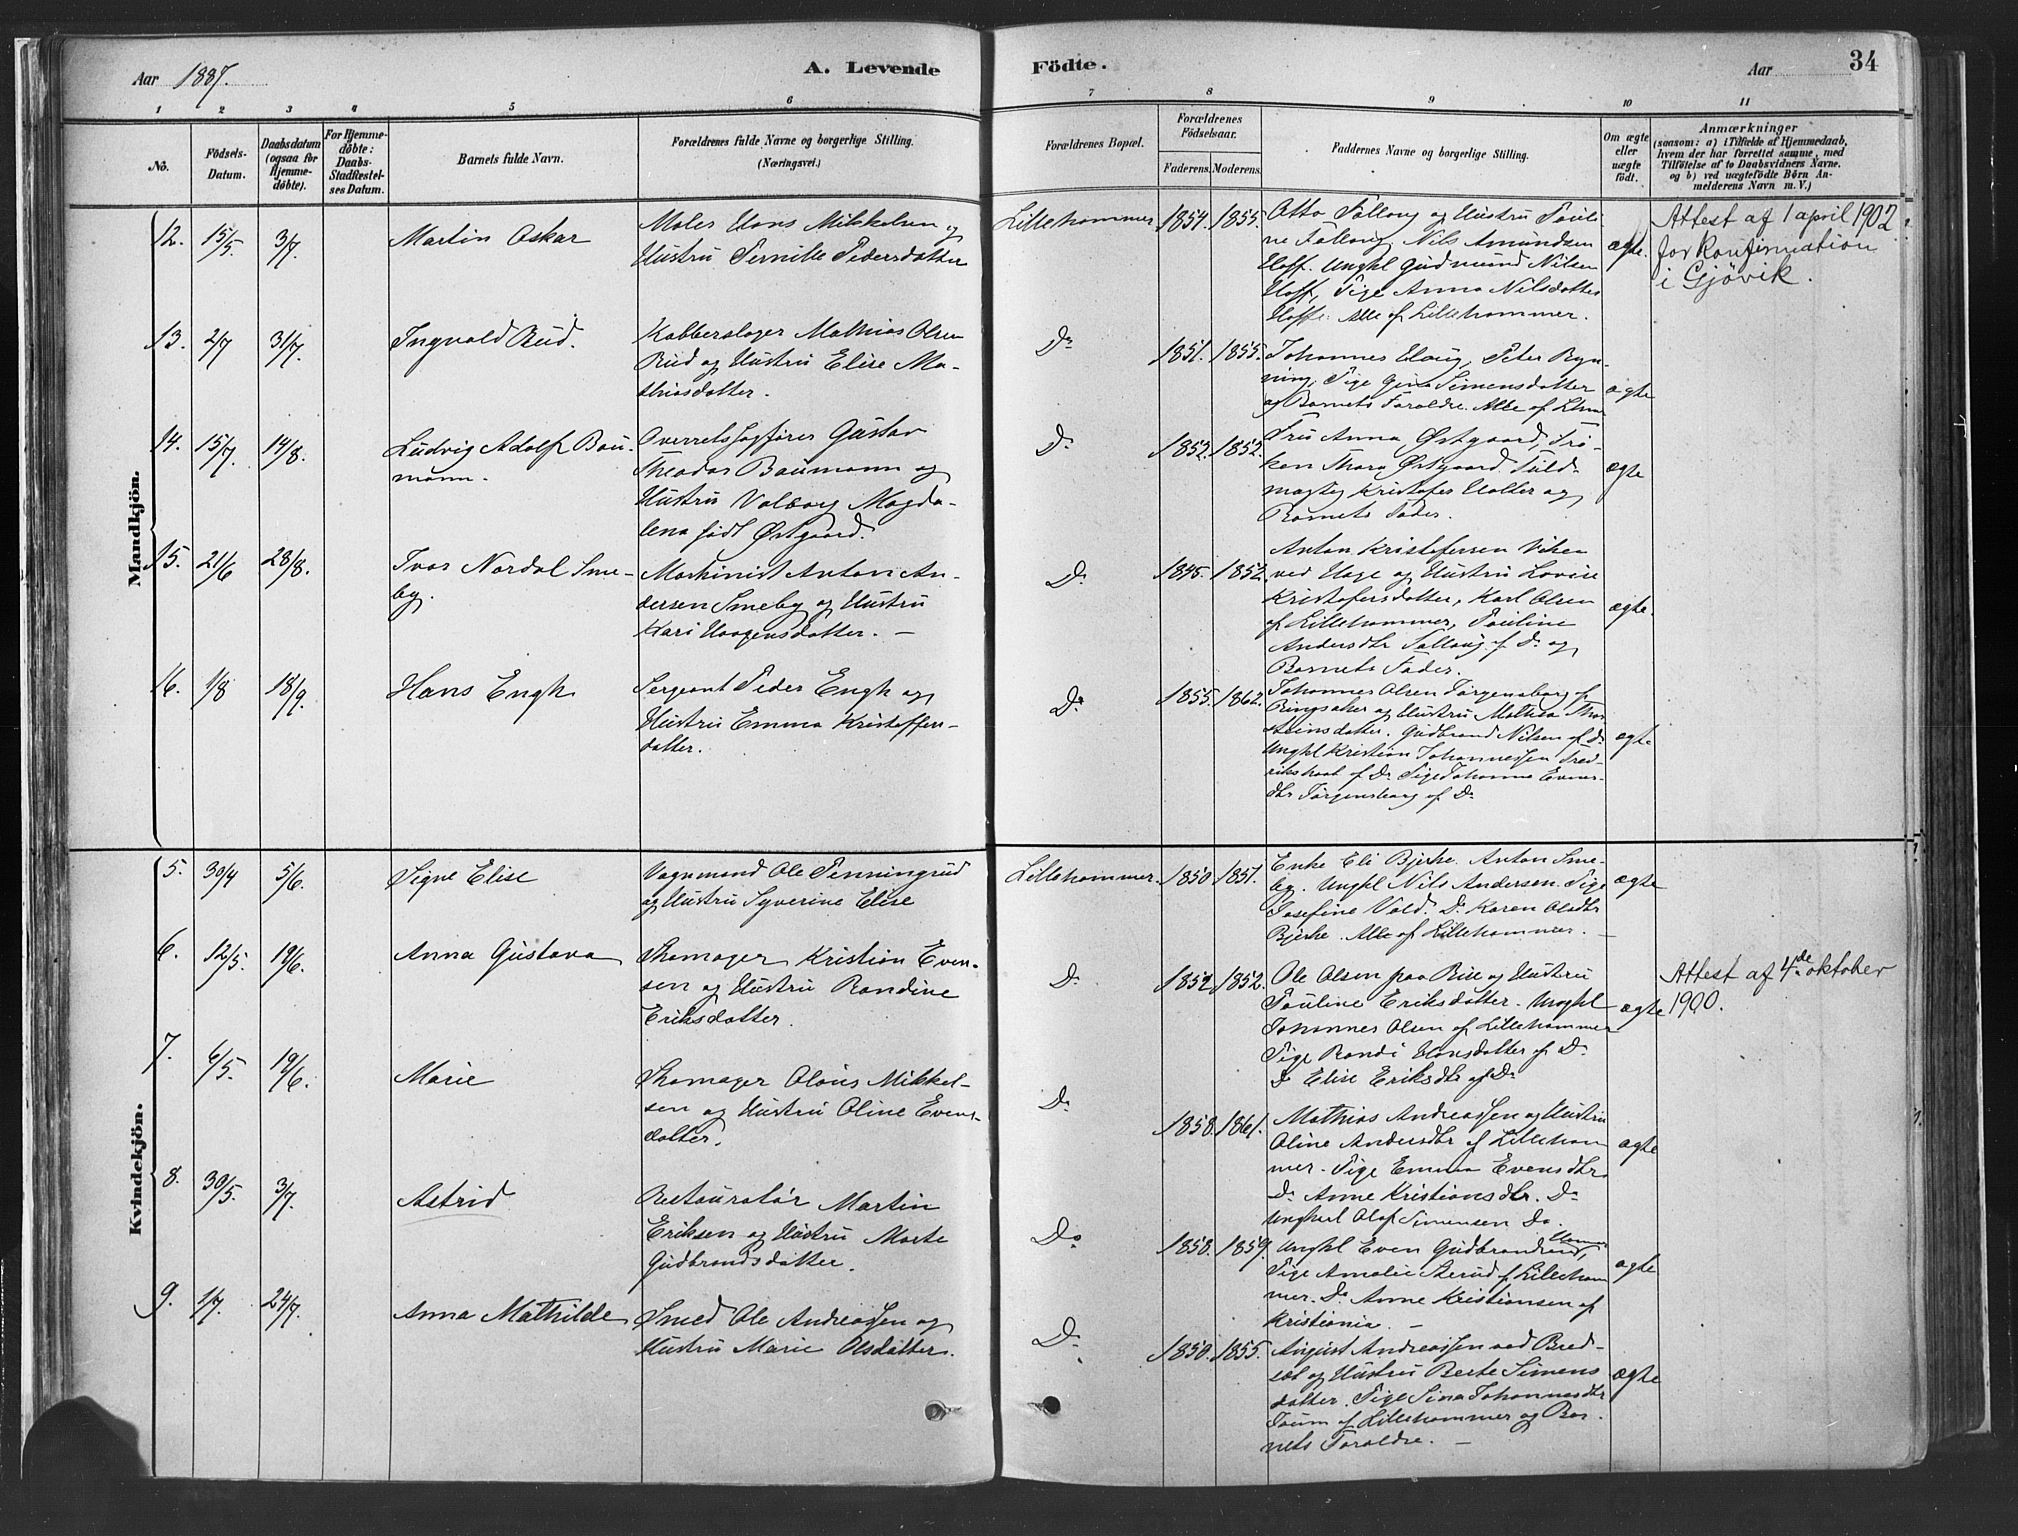 Aar 1887.
A. Levende
Födte.
Aar
34
1 2 3 4 5 6 7 8 9 10 11
No.
Födsels-
Datum.
Daabsdatum
(ogsaa for
Hjemme-
döbte).
For Hjemme-
döbte:
Daabs-
Stadfæstel-
ses Datum.
Barnets fulde Navn.
Forældrenes fulde Navne og borgerlige Stilling.
(Næringsvei.)
Forældrenes Bopæl.
Forældrenes
Födselsaar.
Faderens. Moderens.
Faddernes Navne og borgerlige Stilling.
Om ægte
eller
uægte
födt.
Anmærkninger
(saasom: a) i Tilfælde af Hjemmedaab,
hvem der har forrettet samme, med
Tilföielse af to Daabsvidners Navne.
og b) ved uægtefödte Börn An-
melderens Navn m. V.)
Mandkjön.
12. 15/5 3/7
Martin Oskar
Maler Hans Mikkelsen og
Hustru Pernille Pedersdatter
Lillehammer 1854. 1855.
Otto Fallang og Hustru Pauli-
ne Fallang, Nils Amundsen
Hoff. Unghl Gudmund Nilsen
Hoff, Pige Anna Nilsdatter
Hoff. Alle af Lillehammer.
ægte.
Attest af 1 april 1902
for konfirmation
i Gjövik.
13. 2/7 31/7.
Ingvald Rud.
Kobberslager Mathias Olsen
Rud og Hustru Elise Ma-
thiasdatter.
Do 1851. 1855.
Johannes Haug, Peter Ryn-
ning, Pige Gina Simensdatter
og Barnets Forældre. Alle af Lhmr
ægte
14. 15/7. 14/8.
Ludvig Adolf Bau-
mann.
Overretssagförer Gustav
Theodor Baumann og
Hustru Valborg Magda-
lena födt Østgaard.
Do 1852. 1852.
Fru Anna Østgaard, Frø-
ken Thora Østgaard, Fuld-
mægtig Kristofer Holter og
Barnets Fader.
ægte
15. 21/6 28/8.
Ivar Nordal Sme-
by.
Maskinist Anton An-
dersen Smeby og Hustru
Kari Haagensdatter. —
Do 1845. 1852.
Anton Kristofersen Viken
ved Hage og Hustru Lovise
Kristofersdatter, Karl Olsen
af Lillehammer, Pauline
Andersdtr Fallang af Do og
Barnets Fader.
ægte.
16. 1/8 18/9.
Hans Engh
Sergeant Peder Engh og
Hustru Emma Kristoffers-
datter.
Do 1855. 1862.
Johannes Olsen Jørgensborg af
Ringsaker og Hustru Mathea Thor-
steinsdatter. Gudbrand Nilsen af Do
Unghl Kristian Johannessen Fred-
rikshaab af Do Pige Johanne Evens-
dtr Jørgensborg af Do
ægte
Kvindekjön.
5. 30/4 5/6.
Signe Elise
Vognmand Ole Penningrud
og Hustru Syverine Elise
Lillehammer. 1850 1851.
Enke Eli Bjerke. Anton Sme-
by. Unghl Nils Andersen. Pige
Josefine Vold. Do Karen Olsdtr
Bjerke. Alle af Lillehammer. —
ægte
6. 12/5. 19/6.
Anna Gustava
Skomager Kristian Even-
sen og Hustru Randine
Eriksdatter.
Do 1852. 1852.
Ole Olsen paa Bue og Hustru
Pauline Eriksdatter. Unghl
Johannes Olsen af Lillehammer
Pige Randi Hansdatter af Do.
Do Elise Eriksdtr af Do
ægte
Attest af 4de oktober
1900.
7. 6/5. 19/6.
Marie
Skomager Olaus Mikkel-
sen og Hustru Oline Evens-
datter.
Do 1858. 1861.
Mathias Andreassen og Hustru
Oline Andersdtr af Lilleham
mer. Pige Emma Evensdtr
Do Anne Kristiansdtr. Do
Ungkarl Olaf Simensen Do.
ægte
8. 30/5. 3/7.
Astrid
Restauratör Martin
Eriksen og Hustru Marte
Gudbrandsdatter.
Do 1858. 1859.
Unghl Even Gudbrandsen,
Pige Amalie Sterud af Lilleham
mer. Do Anne Kristiansen af
Kristiania. —
ægte
9. 1/7. 24/7.
Anna Mathilde
Smed Ole Andreassen og
Hustru Marie Olsdatter.
Do 1850. 1855.
August Andreassen ved Bred-
sæt og Hustru Berte Simens
datter. Pige Sina Johannesdtr
Faum af Lillehammer og Bar-
nets Forældre. —
ægte